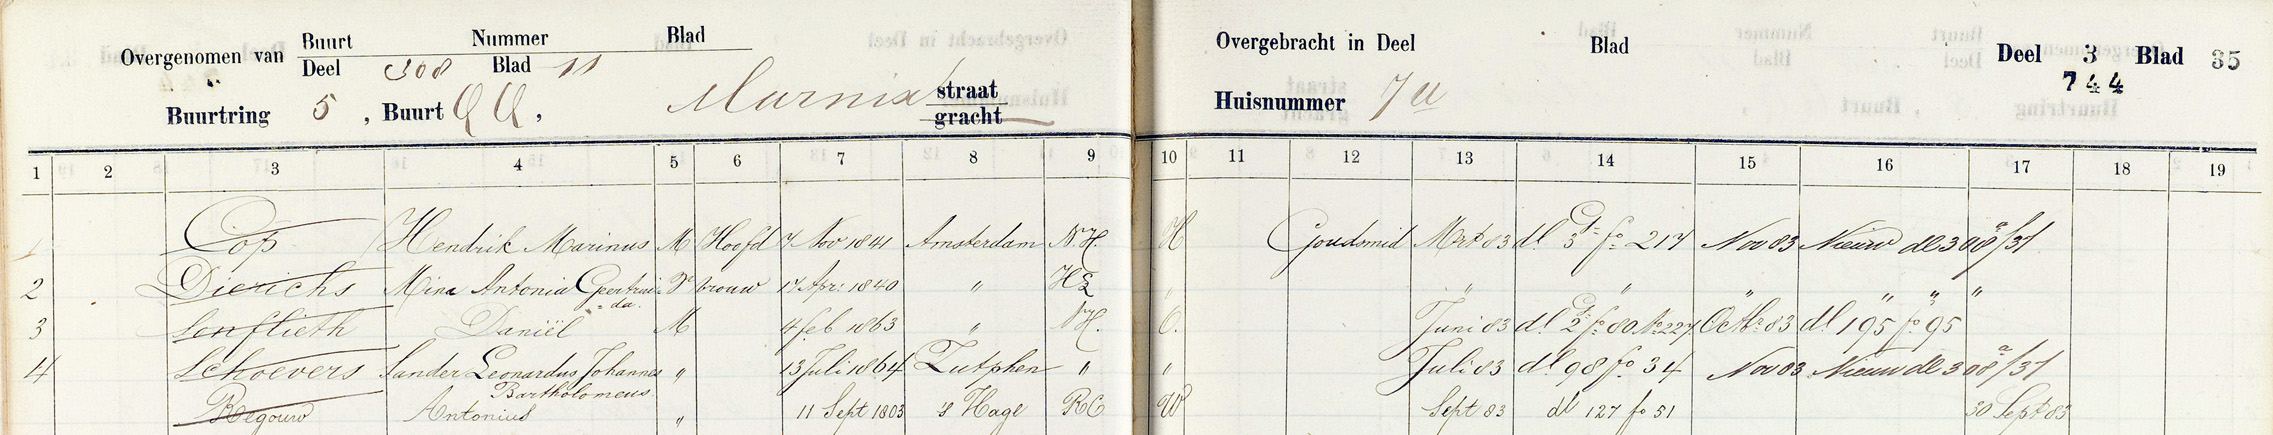 Overgenomen van Buurt Nummer Blad
Deel 308 Blad 11
Buurtring 5, Buurt QQ, Marnix straat
gracht
Overgebracht in Deel Blad
Huisnummer 74
Deel 3 Blad 35
744
1 2 3 4 5 6 7 8 9 10 11 12 13 14 15 16 17 18 19
1 Cop Hendrik Marinus M Hoofd 7 Nov 1841 Amsterdam N.H. H Goudsmid Mrt 83 dl 3 fo 217 Nov 83 Nieuw dl 308a/31
2 Dierichs Mina Antonia Geertrui= Vr vrouw 17 Apr: 1840 " " " " " " "
=da.
3 Senflieth Daniël M 4 feb 1863 " N.H. O. Juni 83 dl 2 fo 80 No 227 Octbr 83 dl 195 fo 95
4 Schoevers Sander Leonardus Johannes " 13 Juli 1864 Zutphen " " Juli 83 dl 98 fo 34 Nov 83 Nieuw dl 308a/31
Bartholomeus
Regouw Antonius " 11 Sept 1803 's Hage RC W Sept 83 dl 127 fo 51 30 Sept 83